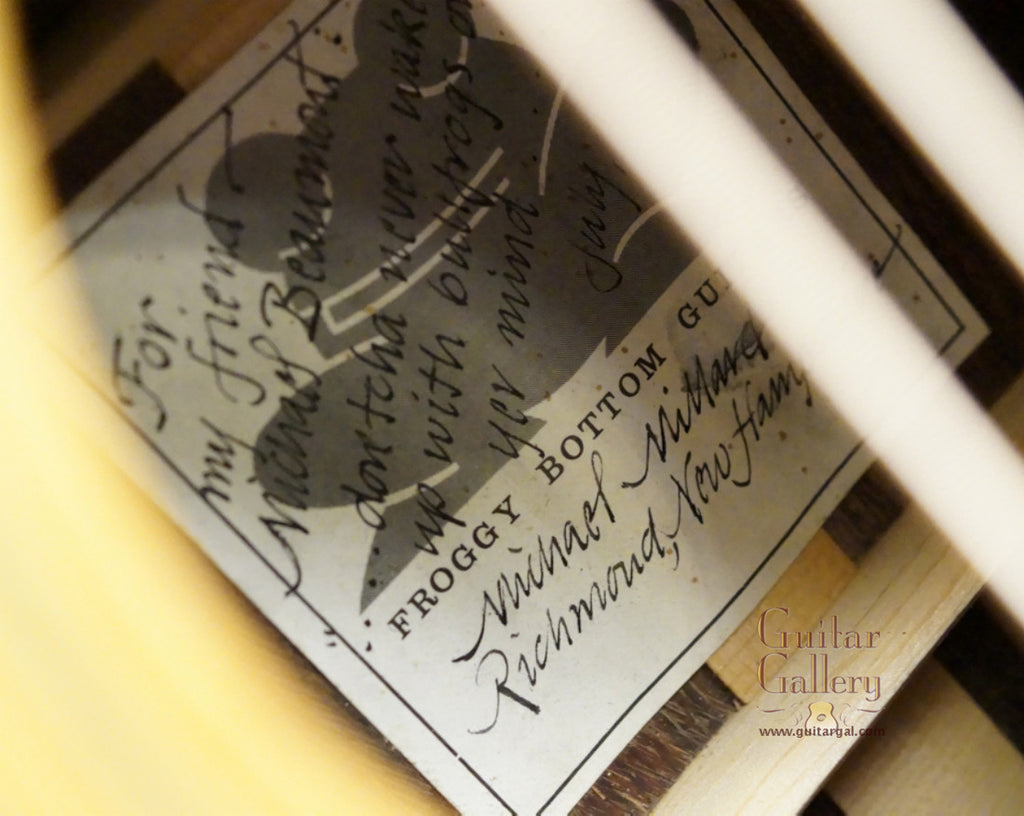 For
my friend
Michael Beaumont
"dontcha never make
up with bullfrogs on
yer mind.
July
FROGGY BOTTOM
Michael Millard
Richmond, New
Guitar
Gallery
www.guitargal.com